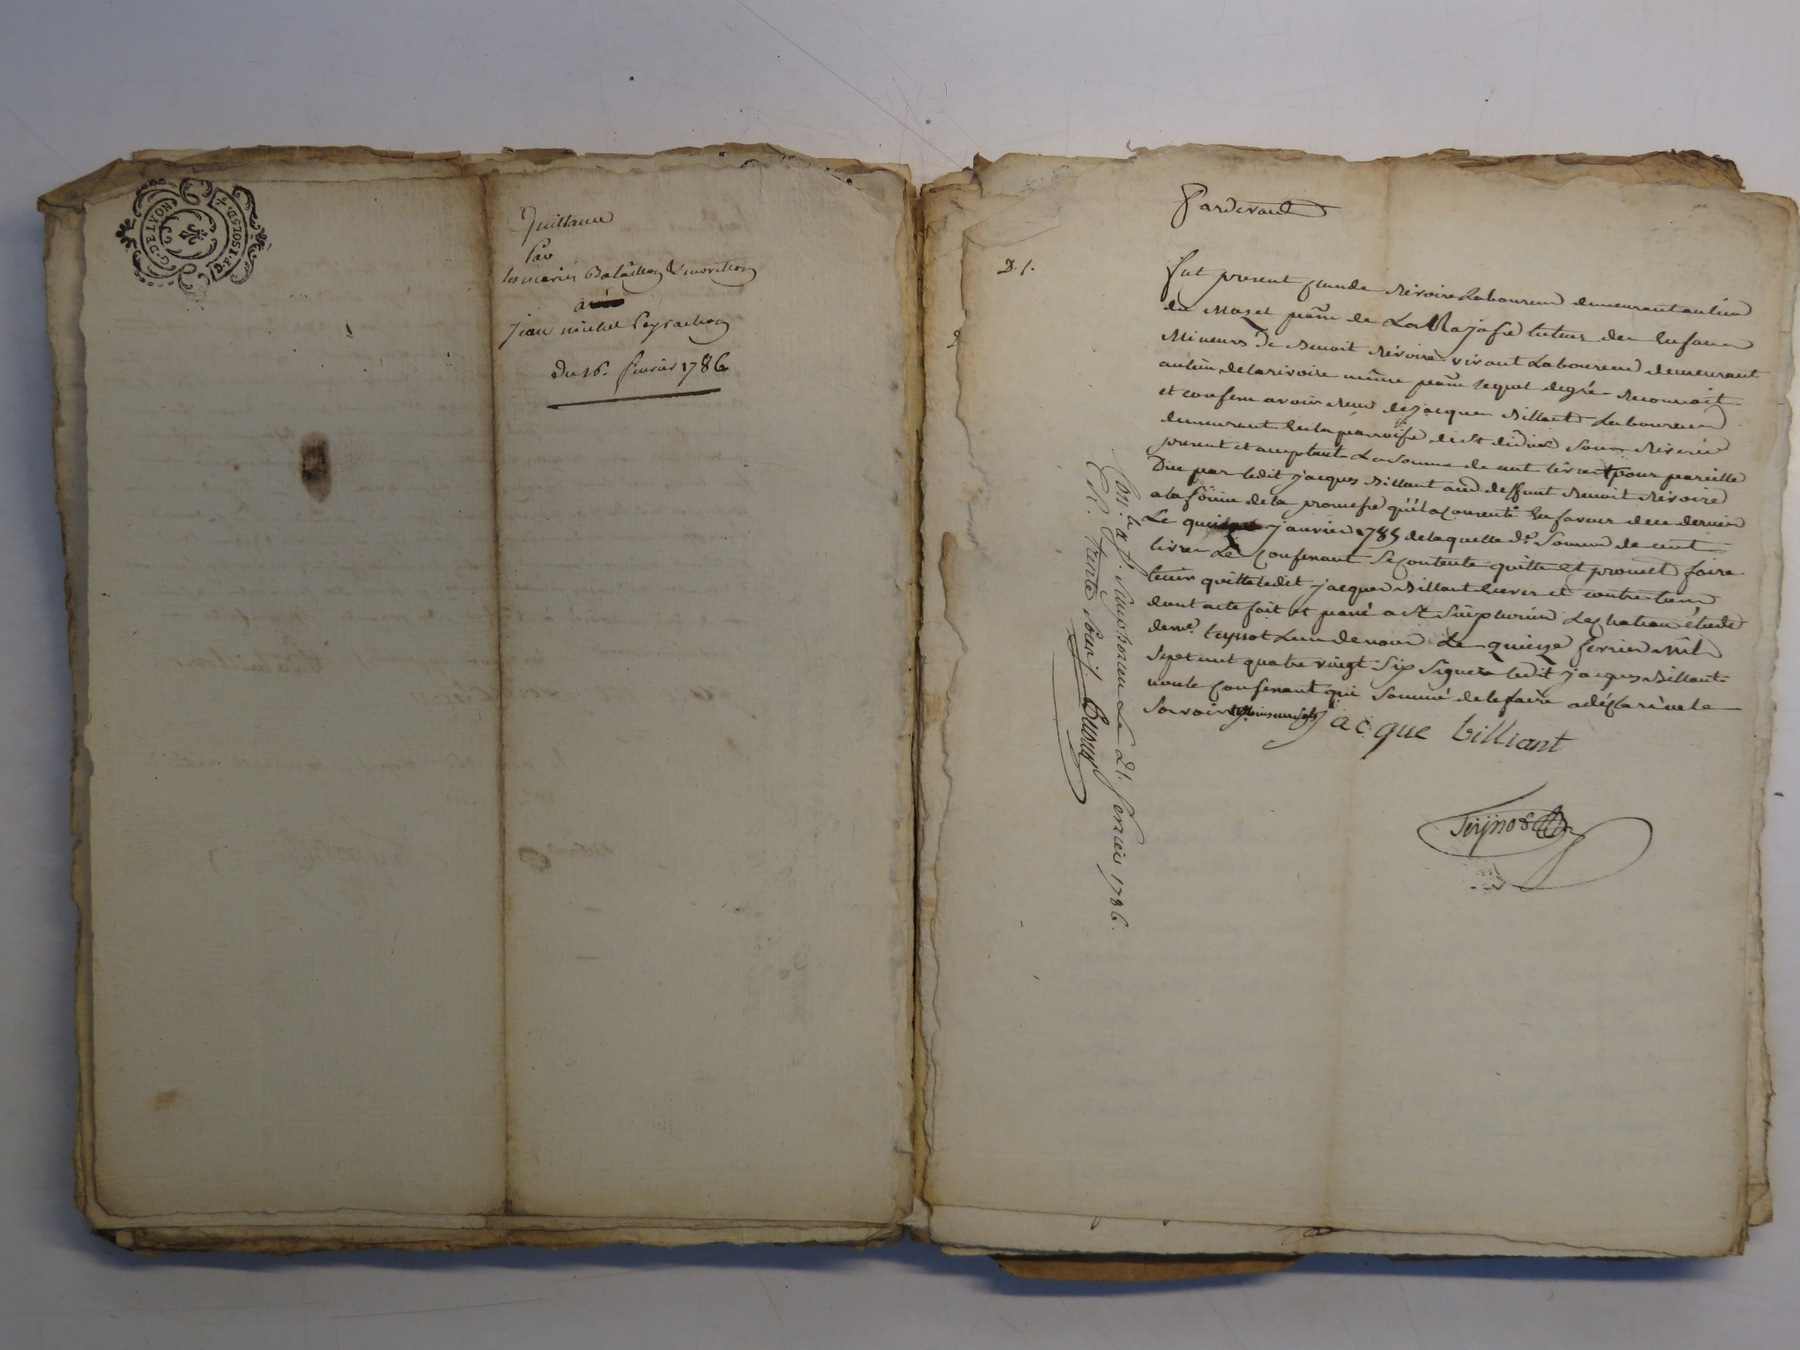 G. DE LYON
2. DSTOSI.D.F.
Quittance
Par
les mariés Bataillon & morellon
a
Jean michel Peyrachon
du 16. fevrier 1786
Pardevant
D. 1.
fut present Claude Revoire Laboureur demeurant au lieu
du Mazet psse de La Rajasse tuteur des Enfans
Mineurs de Benoit Revoire vivant Laboureur demeurant
au lieu de la rivoire même psse lequel de gré Reconnoit
et confesse avoir Reçu de jacques Billiant Laboureur
demeurant en la parroisse de St didier sous Riverie
present et acceptant La somme de cent livres pour pareille
Düe par ledit jacques Billiant au deffunt Benoit Revoire
a la forme de la promesse qu'il a consenti En faveur de ce dernier
Le janvier 1785 de laquelle de. Somme de cent
livres Le Confessant Se Contente quitte et promet faire
tenir quitte ledit jacques Billiant Envers et contre tous
dont acte fait et passé a St Simphorien Le Chateau étude
de me. teyssot L'un de nous Le quinze fevrier Mil
Sept cent quatre vingt Six Signera ledit jacques Billiant
non le Confessant qui Sommé de le faire a déclaré ne le
Savoir
jacque billiant
Con.lé a St. Simphorien Le 21. fevrier 1786.
R. trente sous